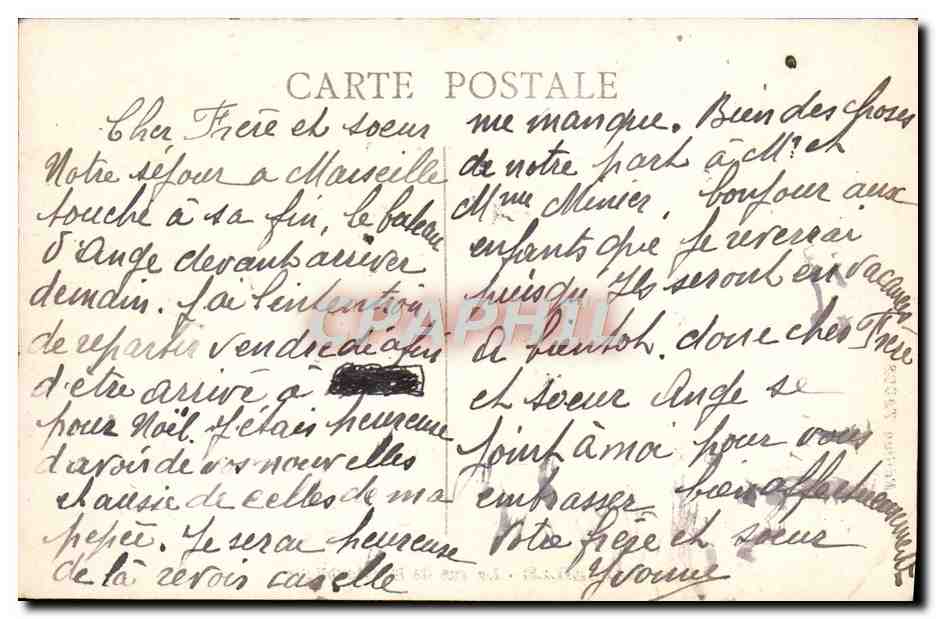 CARTE POSTALE
Cher Frère et soeur
Notre séjour a Marseille
touche à sa fin, le bateau
d'Ange devant arriver
demain. J'ai l'intention
de repartir vendredi afin
d'être arrivé à
pour Noël. J'étais heureuse
d'avoir de vos nouvelles
et aussie de celles de ma
pepée. Je serai heureuse
de la revoir car elle
me manque. Bien des choses
de notre part à Mr et
Mme Minier, bonjour aux
enfants que je reverrai
puisqu'Ils seront en vacances
A bientot. donc cher Frère
et soeur Ange se
joint à moi pour vous
embrasser bien affectueusement
Votre frère et soeur
Yvonne
CPAPHIL